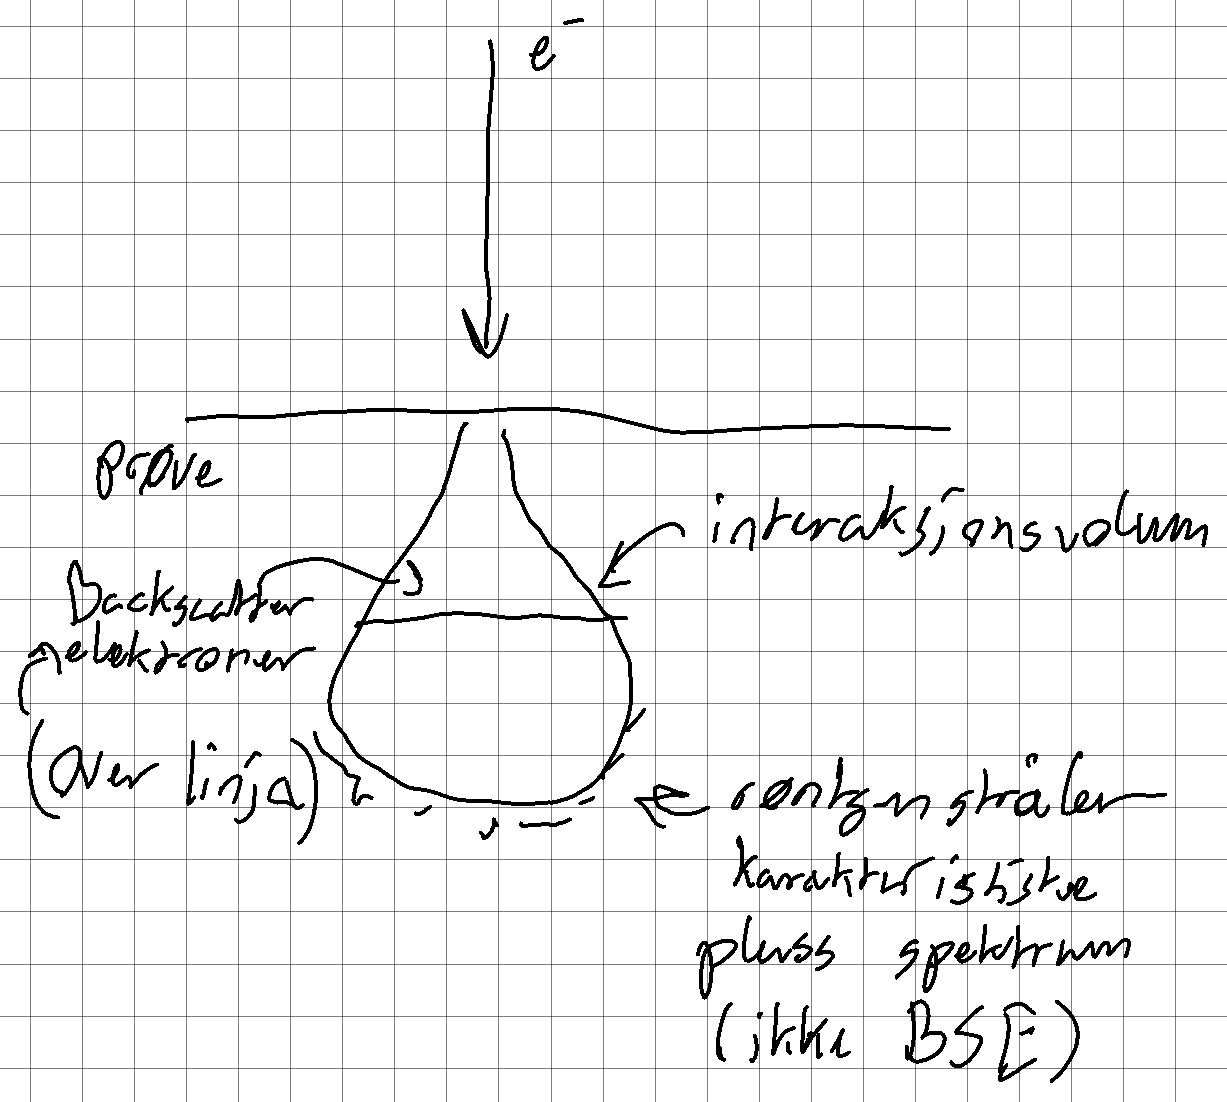 e⁻
prøve
interaksjonsvolum
Backscatter
elektroner
(over linja)
røntgenstråler
karakteristiske
pluss spektrum
(ikke BSE)